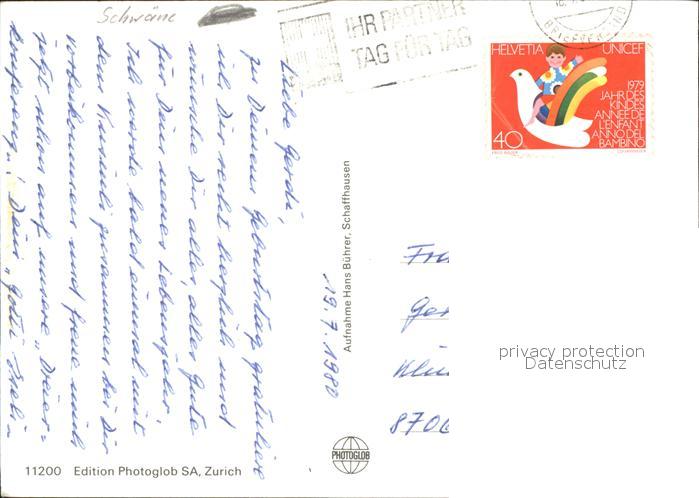 Schwäne
IHR PARTNER
TAG FÜR TAG
HELVETIA UNICEF
1979
JAHR DES
KINDES
ANNEE DE
L'ENFANT
ANNO DEL
BAMBINO
40
Liebe Gerdi,
zu Deinem Geburtstag gratuliere
ich Dir recht herzlich und
wünsche Dir alles, alles Gute
für Dein neues Lebensjahr.
Ich werde bald einmal mit
dem Vreneli zusammen bei Dir
vorbeikommen und freue mich
jetzt schon auf unsere "Dreier=
konferenz"! Dein
19.7.1980
Aufnahme Hans Bührer, Schaffhausen
Fra
Ger
8700
privacy protection
Datenschutz
PHOTOGLOB
11200 Edition Photoglob SA, Zurich